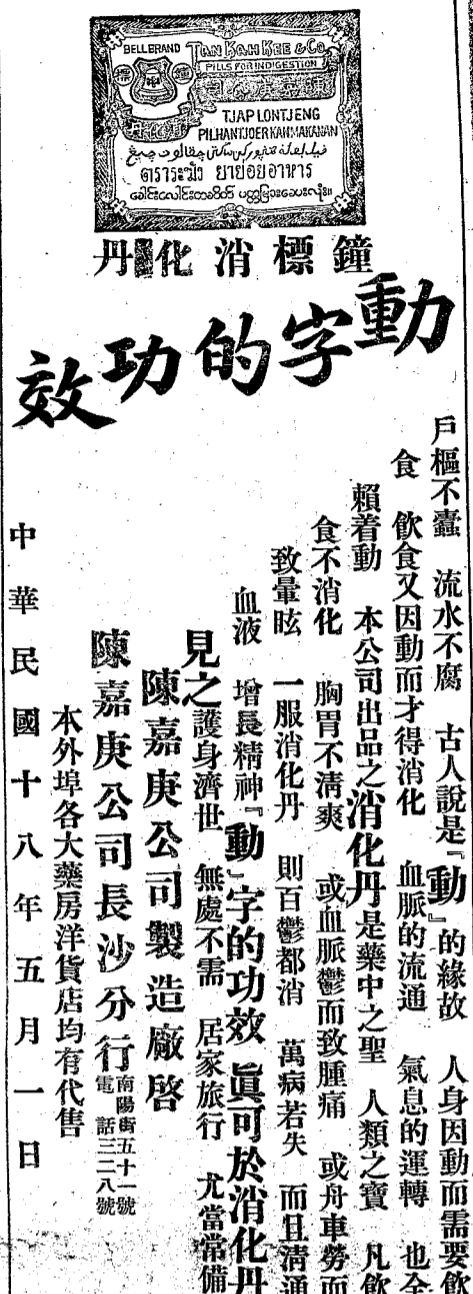 BELL BRAND
TAN KAH KEE & Co
PILLS FOR INDIGESTION
TJAP LONTJENG
PIL HANTJOERKAN MAKANAN
ตราระฆัง ยาย่อยอาหาร
鐘標消化丹
動字的功效
戶樞不蠹 流水不腐 古人說是『動』的緣故 人身因動而需要飲
食 飲食又因動而才得消化 血脈的流通 氣息的運轉 也全
賴着動 本公司出品之消化丹是藥中之聖 人類之寶 凡飲
食不消化 胸胃不清爽 或血脈鬱而致腫痛 或舟車勞而
致暈眩 一服消化丹 則百鬱都消 萬病若失 而且清通
血液 增長精神『動』字的功效 眞可於消化丹
見之護身濟世 無處不需 居家旅行 尤當常備
陳嘉庚公司製造廠啓
陳嘉庚公司長沙分行 南陽街五十一號
電話三二八號
本外埠各大藥房洋貨店均有代售
中華民國十八年五月一日